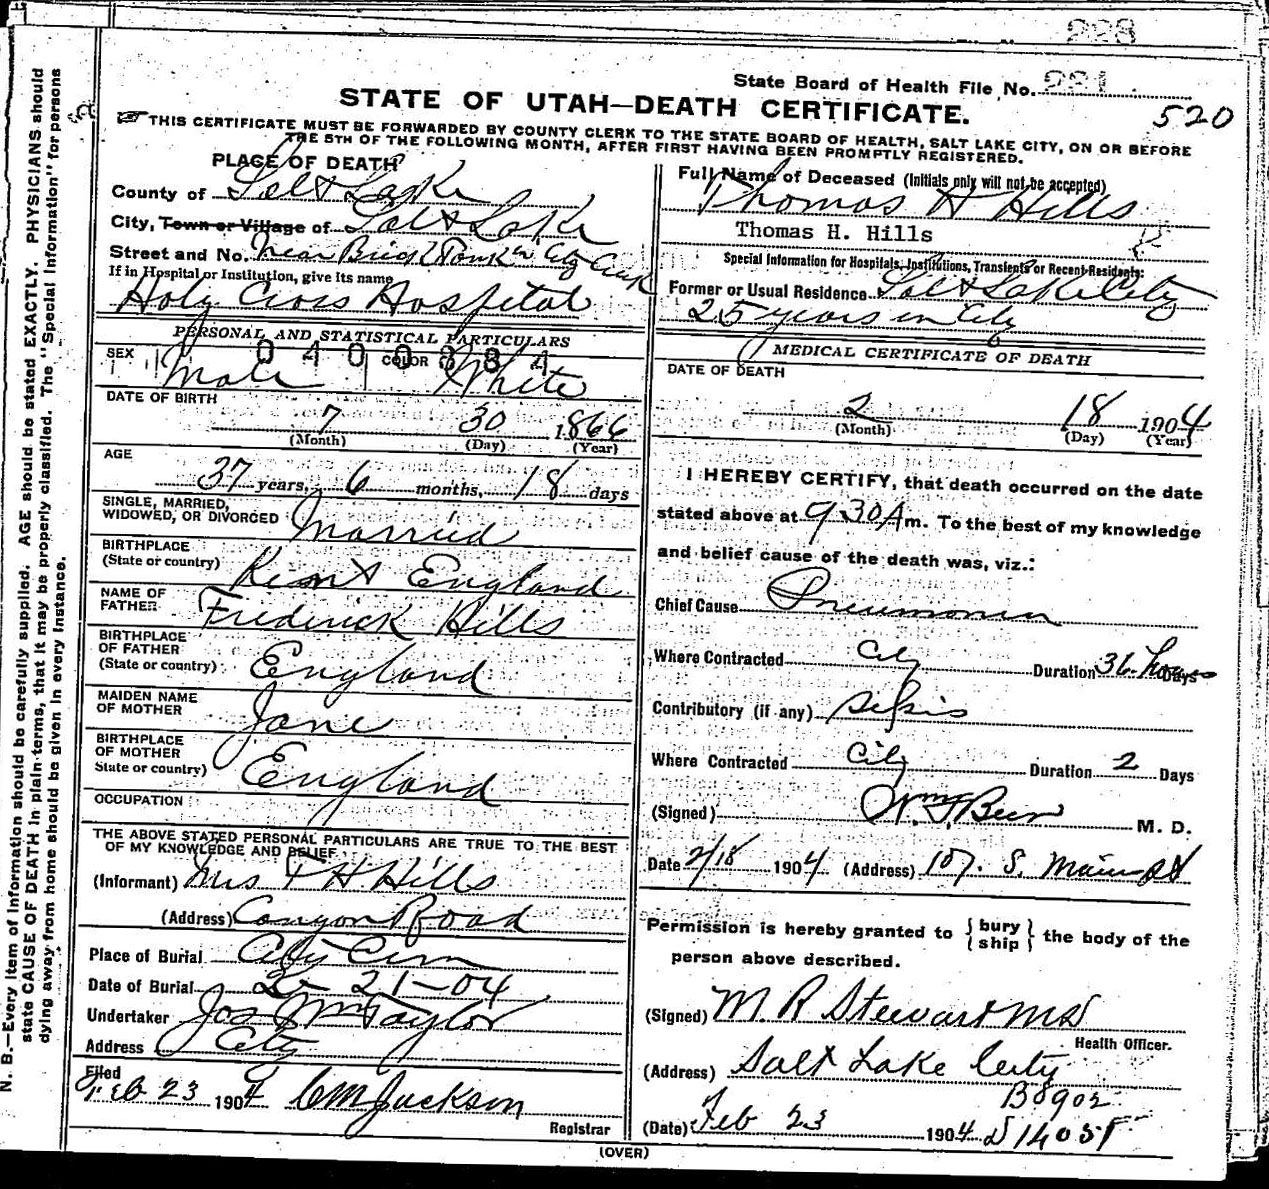 228
State Board of Health File No. 221
520
STATE OF UTAH—DEATH CERTIFICATE.
THIS CERTIFICATE MUST BE FORWARDED BY COUNTY CLERK TO THE STATE BOARD OF HEALTH, SALT LAKE CITY, ON OR BEFORE
THE 5TH OF THE FOLLOWING MONTH, AFTER FIRST HAVING BEEN PROMPTLY REGISTERED.
PLACE OF DEATH
County of Salt Lake
City, Town or Village of Salt Lake
Street and No. Near Brick Tank City Creek
If in Hospital or Institution, give its name
Holy Cross Hospital
PERSONAL AND STATISTICAL PARTICULARS
0400
SEX COLOR
Male White
DATE OF BIRTH
7 30 1866
(Month) (Day) (Year)
AGE
37 years, 6 months, 18 days
SINGLE, MARRIED,
WIDOWED, OR DIVORCED Married
BIRTHPLACE
(State or country) Kent England
NAME OF
FATHER Frederick Hills
BIRTHPLACE
OF FATHER
(State or country) England
MAIDEN NAME
OF MOTHER Jane
BIRTHPLACE
OF MOTHER
State or country) England
OCCUPATION
THE ABOVE STATED PERSONAL PARTICULARS ARE TRUE TO THE BEST
OF MY KNOWLEDGE AND BELIEF
(Informant) Mrs T H Hills
(Address) Canyon Road
Place of Burial City Cem
Date of Burial 2-21-04
Undertaker Jos Wm Taylor
Address City
Filed
Feb 23 1904 CM Jackson
Registrar
Full Name of Deceased (Initials only will not be accepted)
Thomas H Hills
Thomas H. Hills
Special Information for Hospitals, Institutions, Transients or Recent Residents:
Former or Usual Residence Salt Lake City
25 years in City
MEDICAL CERTIFICATE OF DEATH
DATE OF DEATH
2 18 1904
(Month) (Day) (Year)
I HEREBY CERTIFY, that death occurred on the date
stated above at 9 30 A m. To the best of my knowledge
and belief cause of the death was, viz.:
Chief Cause Pneumonia
Where Contracted City Duration 36 hours Days
Contributory (if any) Sepsis
Where Contracted City Duration 2 Days
(Signed) Wm F Beer M. D.
Date 2/18 1904 (Address) 107. S. Main St
Permission is hereby granted to {bury
ship} the body of the
person above described.
(Signed) M. R Stewart MD
Health Officer.
(Address) Salt Lake City
(Date) Feb 23 1904
(OVER)
N. B.—Every item of information should be carefully supplied. AGE should be stated EXACTLY. PHYSICIANS should
state CAUSE OF DEATH in plain terms, that it may be properly classified. The "Special Information" for persons
dying away from home should be given in every instance.